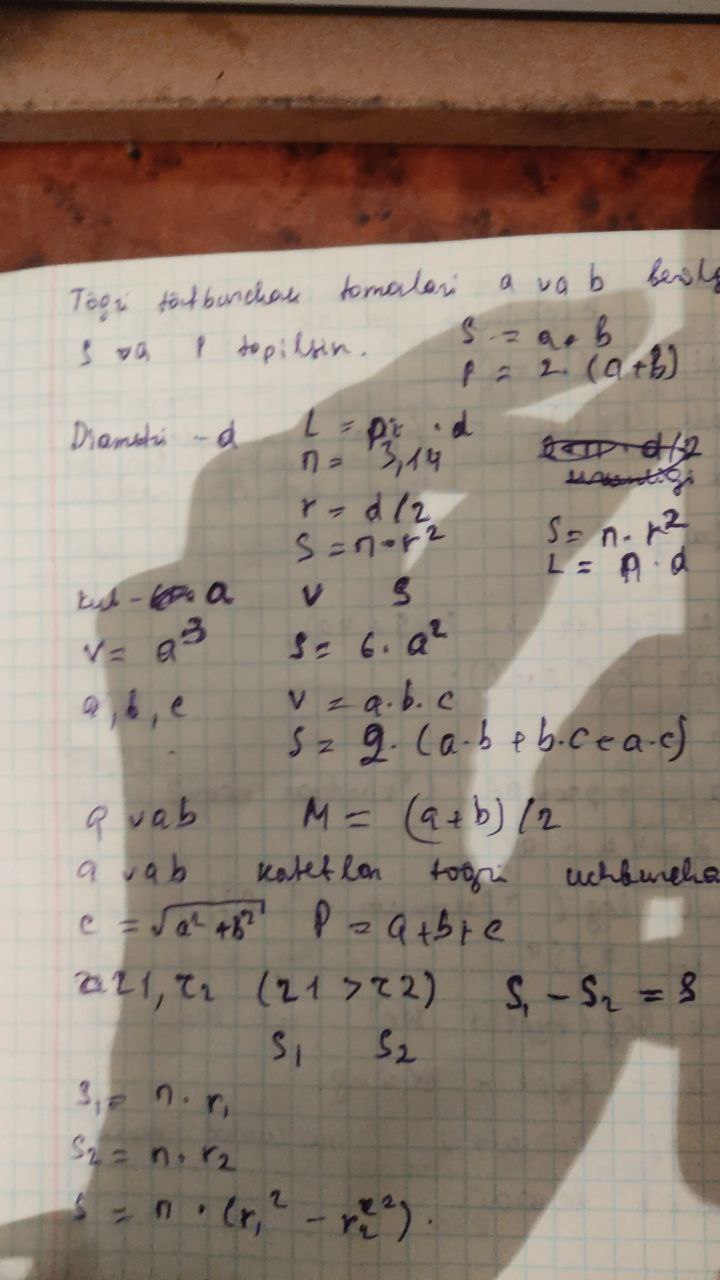 Togri tortburchak tomonlari a va b
S va P topilsin. S = a · b
P = 2 · (a+b)
Diametri - d L = pi · d
n = 3,14
r = d/2
S = n · r²
S = n · r²
L = n · d
kub - a V S
V = a³ S = 6 · a²
a, b, c V = a·b·c
S = 2 · (a·b + b·c + a·c)
a va b M = (a+b)/2
a va b katetlar togri uchburcha
c = √a² + b² P = a+b+c
r1, r2 (r1 > r2) S₁ - S₂ = S
S₁ S₂
S₁ = n · r₁
S₂ = n · r₂
S = n · (r₁² - r₂²).